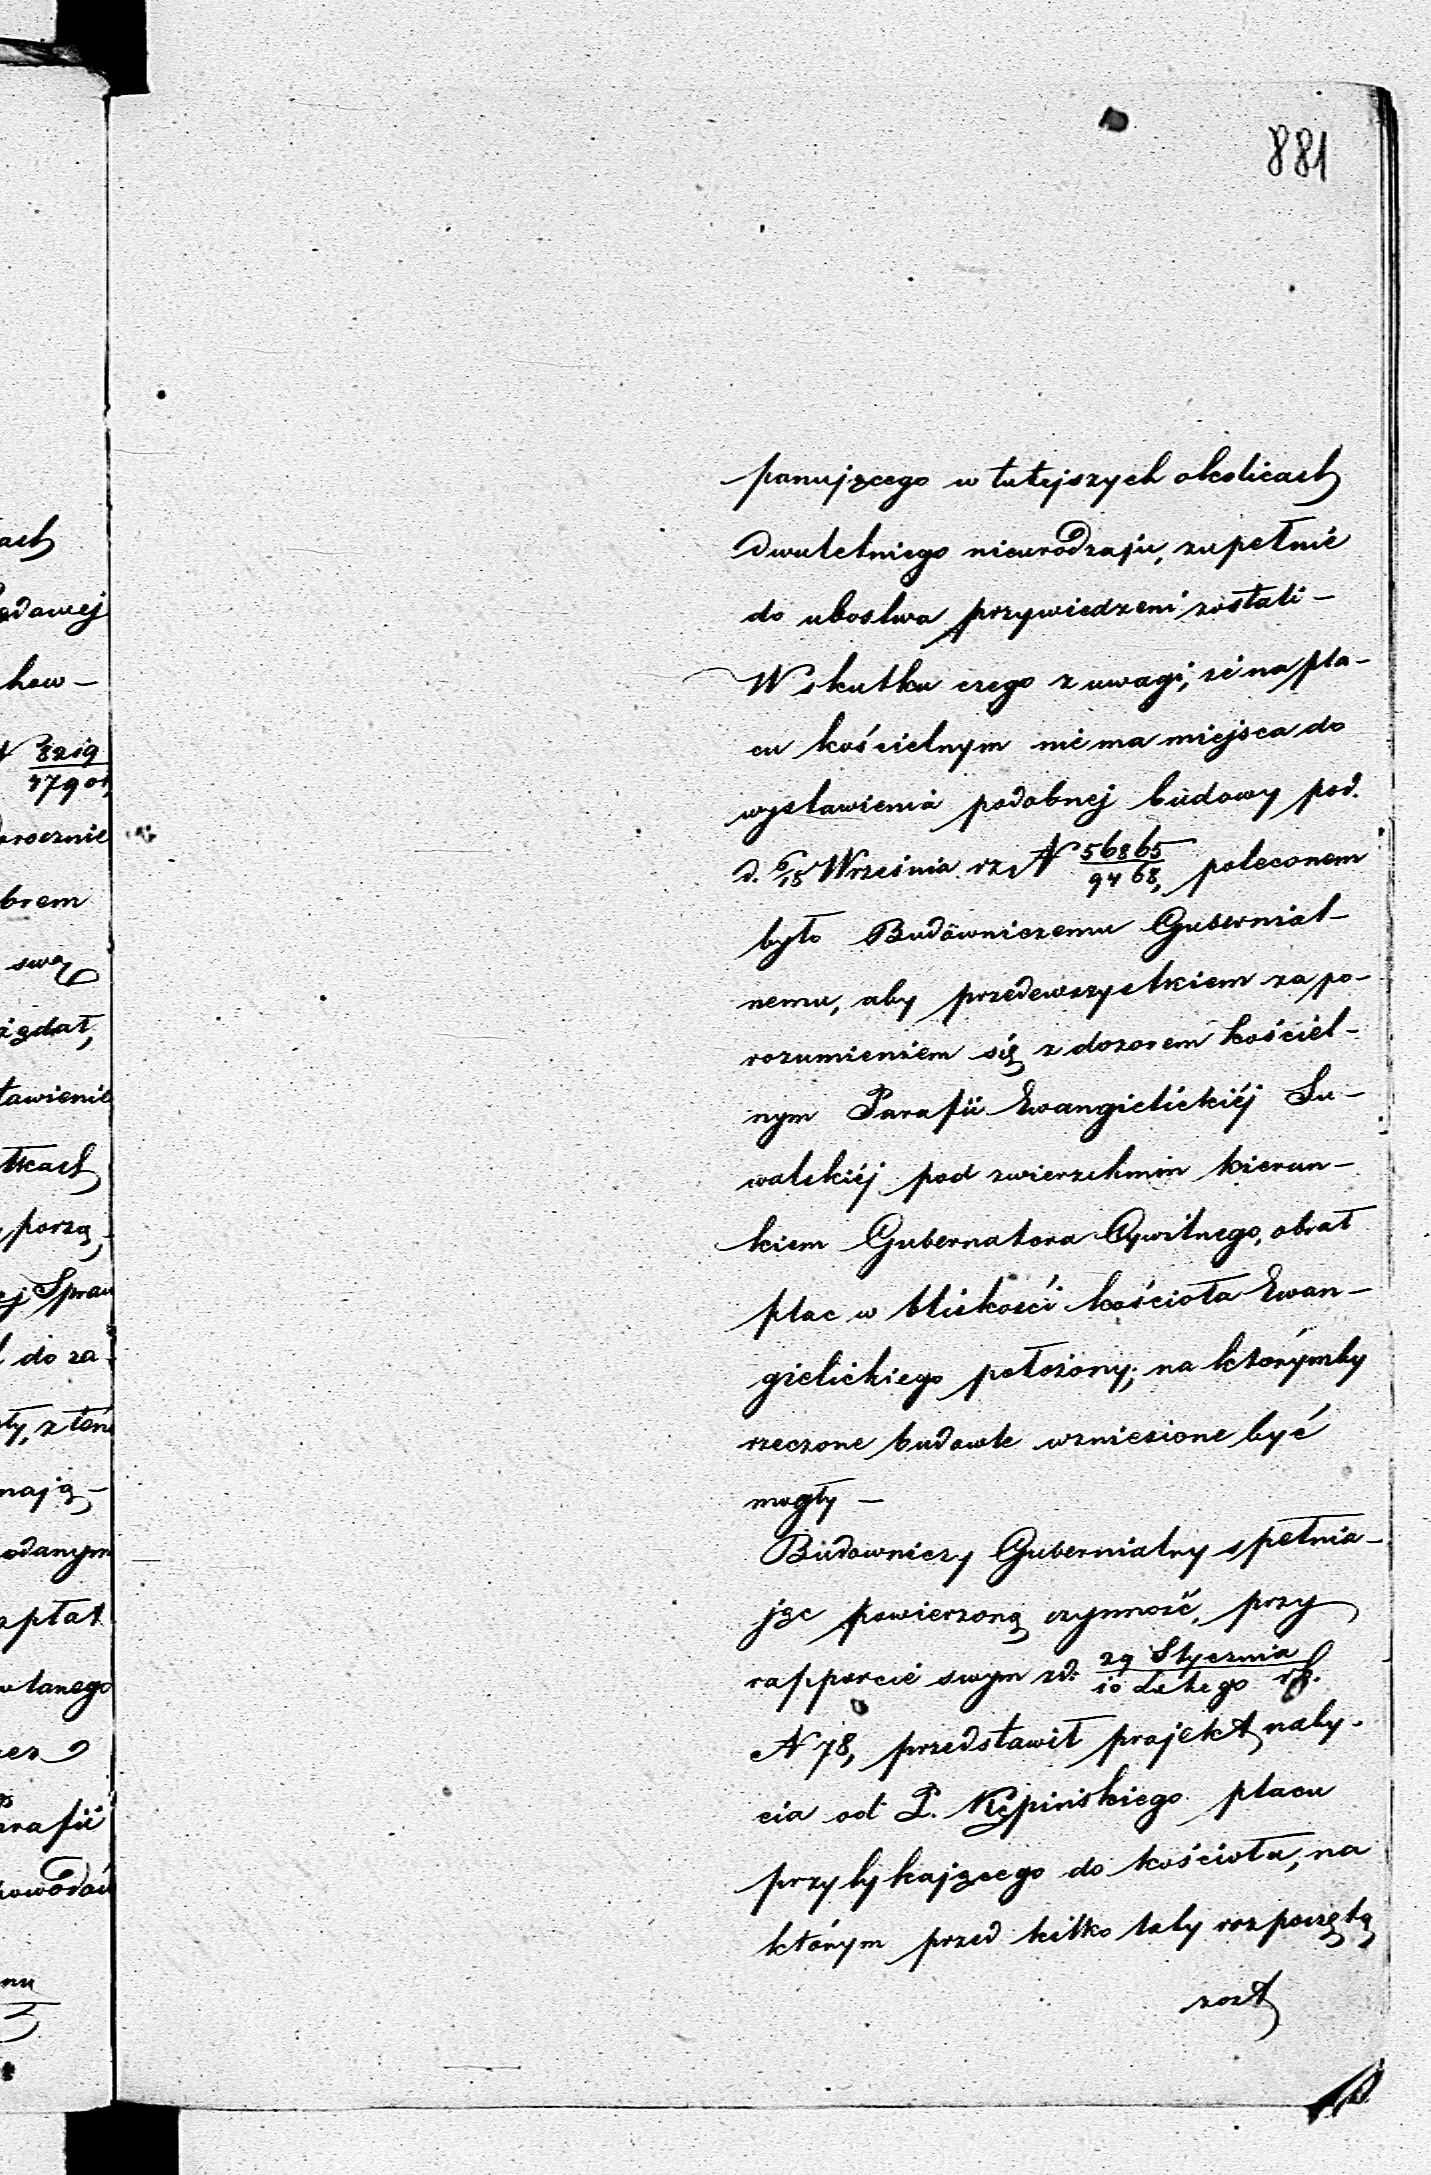 881
panującego w tutejszych okolicach
dwuletniego nieurodzaju, zupełnie
do ubostwa przywiedzeni zostali —
W skutku czego z uwagi, że na pla-
cu kościelnym nie ma miejsca do
wystawienia podobnej budowy pod.
d. 6/18 Września rz. N 56865/9468, poleconem
było Budowniczemu Gubernial-
nemu, aby przedewszystkiem za po-
rozumieniem się z dozorem kościel-
nym Parafii Ewangielickiéj Su-
walskiéj pod zwierzchnim kierun-
kiem Gubernatora Cywilnego, obrał
plac w bliskości kościoła Ewan-
gielickiego położony, na którymby
rzeczone budowle wzniesione być
mogły —
Budowniczy Gubernialny spełnia-
jąc powierzoną czynność, przy
rapporcie swym zd. 29 Stycznia/10 Lutego rb.
N 78, przedstawił projekt naby-
cia od P. Kępińskiego placu
przytykającego do kościoła, na
którym przed kilko laty rozpoczętą
zost
ach
ędowej
how —
N 8219/4790
brem
swą
tawienie
tkach
porzą-
ej Spraw
do za-
mają —
odanym
zpłat
arafii
powodów